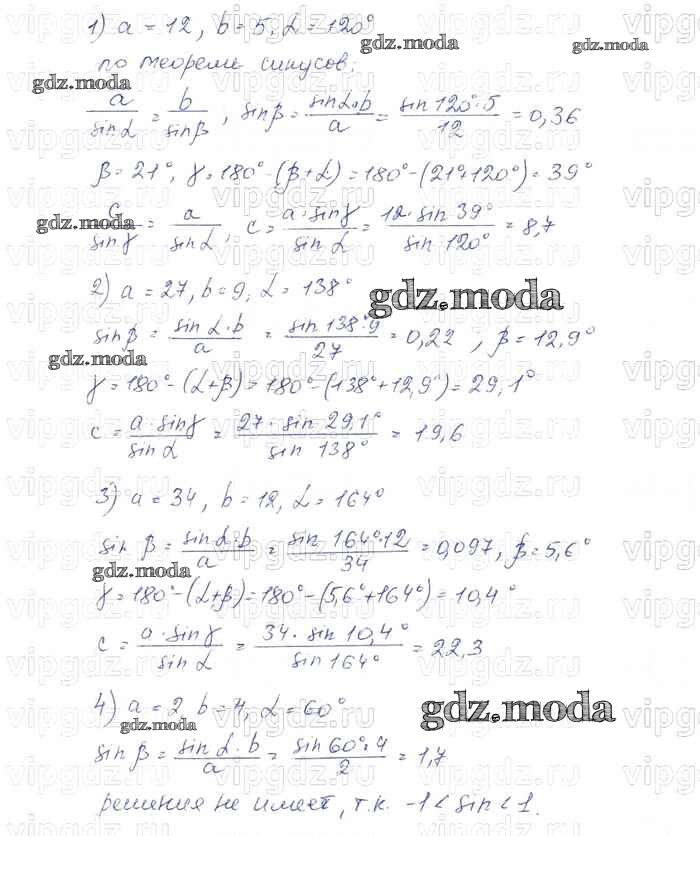 1) a = 12, b = 5, α = 120°
по теореме синусов:
a/sin α = b/sin β, sin β = sin α · b/a = sin 120° · 5/12 = 0,36
β = 21°, γ = 180° - (β + α) = 180° - (21° + 120°) = 39°
c/sin γ = a/sin α, c = a · sin γ/sin α = 12 · sin 39°/sin 120° = 8,7
2) a = 27, b = 9, α = 138°
sin β = sin α · b/a = sin 138° · 9/27 = 0,22, β = 12,9°
γ = 180° - (α + β) = 180° - (138° + 12,9°) = 29,1°
c = a · sin γ/sin α = 27 · sin 29,1°/sin 138° = 19,6
3) a = 34, b = 12, α = 164°
sin β = sin α · b/a = sin 164° · 12/34 = 0,097, β = 5,6°
γ = 180° - (α + β) = 180° - (5,6° + 164°) = 10,4°
c = a · sin γ/sin α = 34 · sin 10,4°/sin 164° = 22,3
4) a = 2 b = 4, α = 60°
sin β = sin α · b/a = sin 60° · 4/2 = 1,7
решения не имеет, т.к. -1 < sin < 1.
gdz.moda
vipgdz.ru